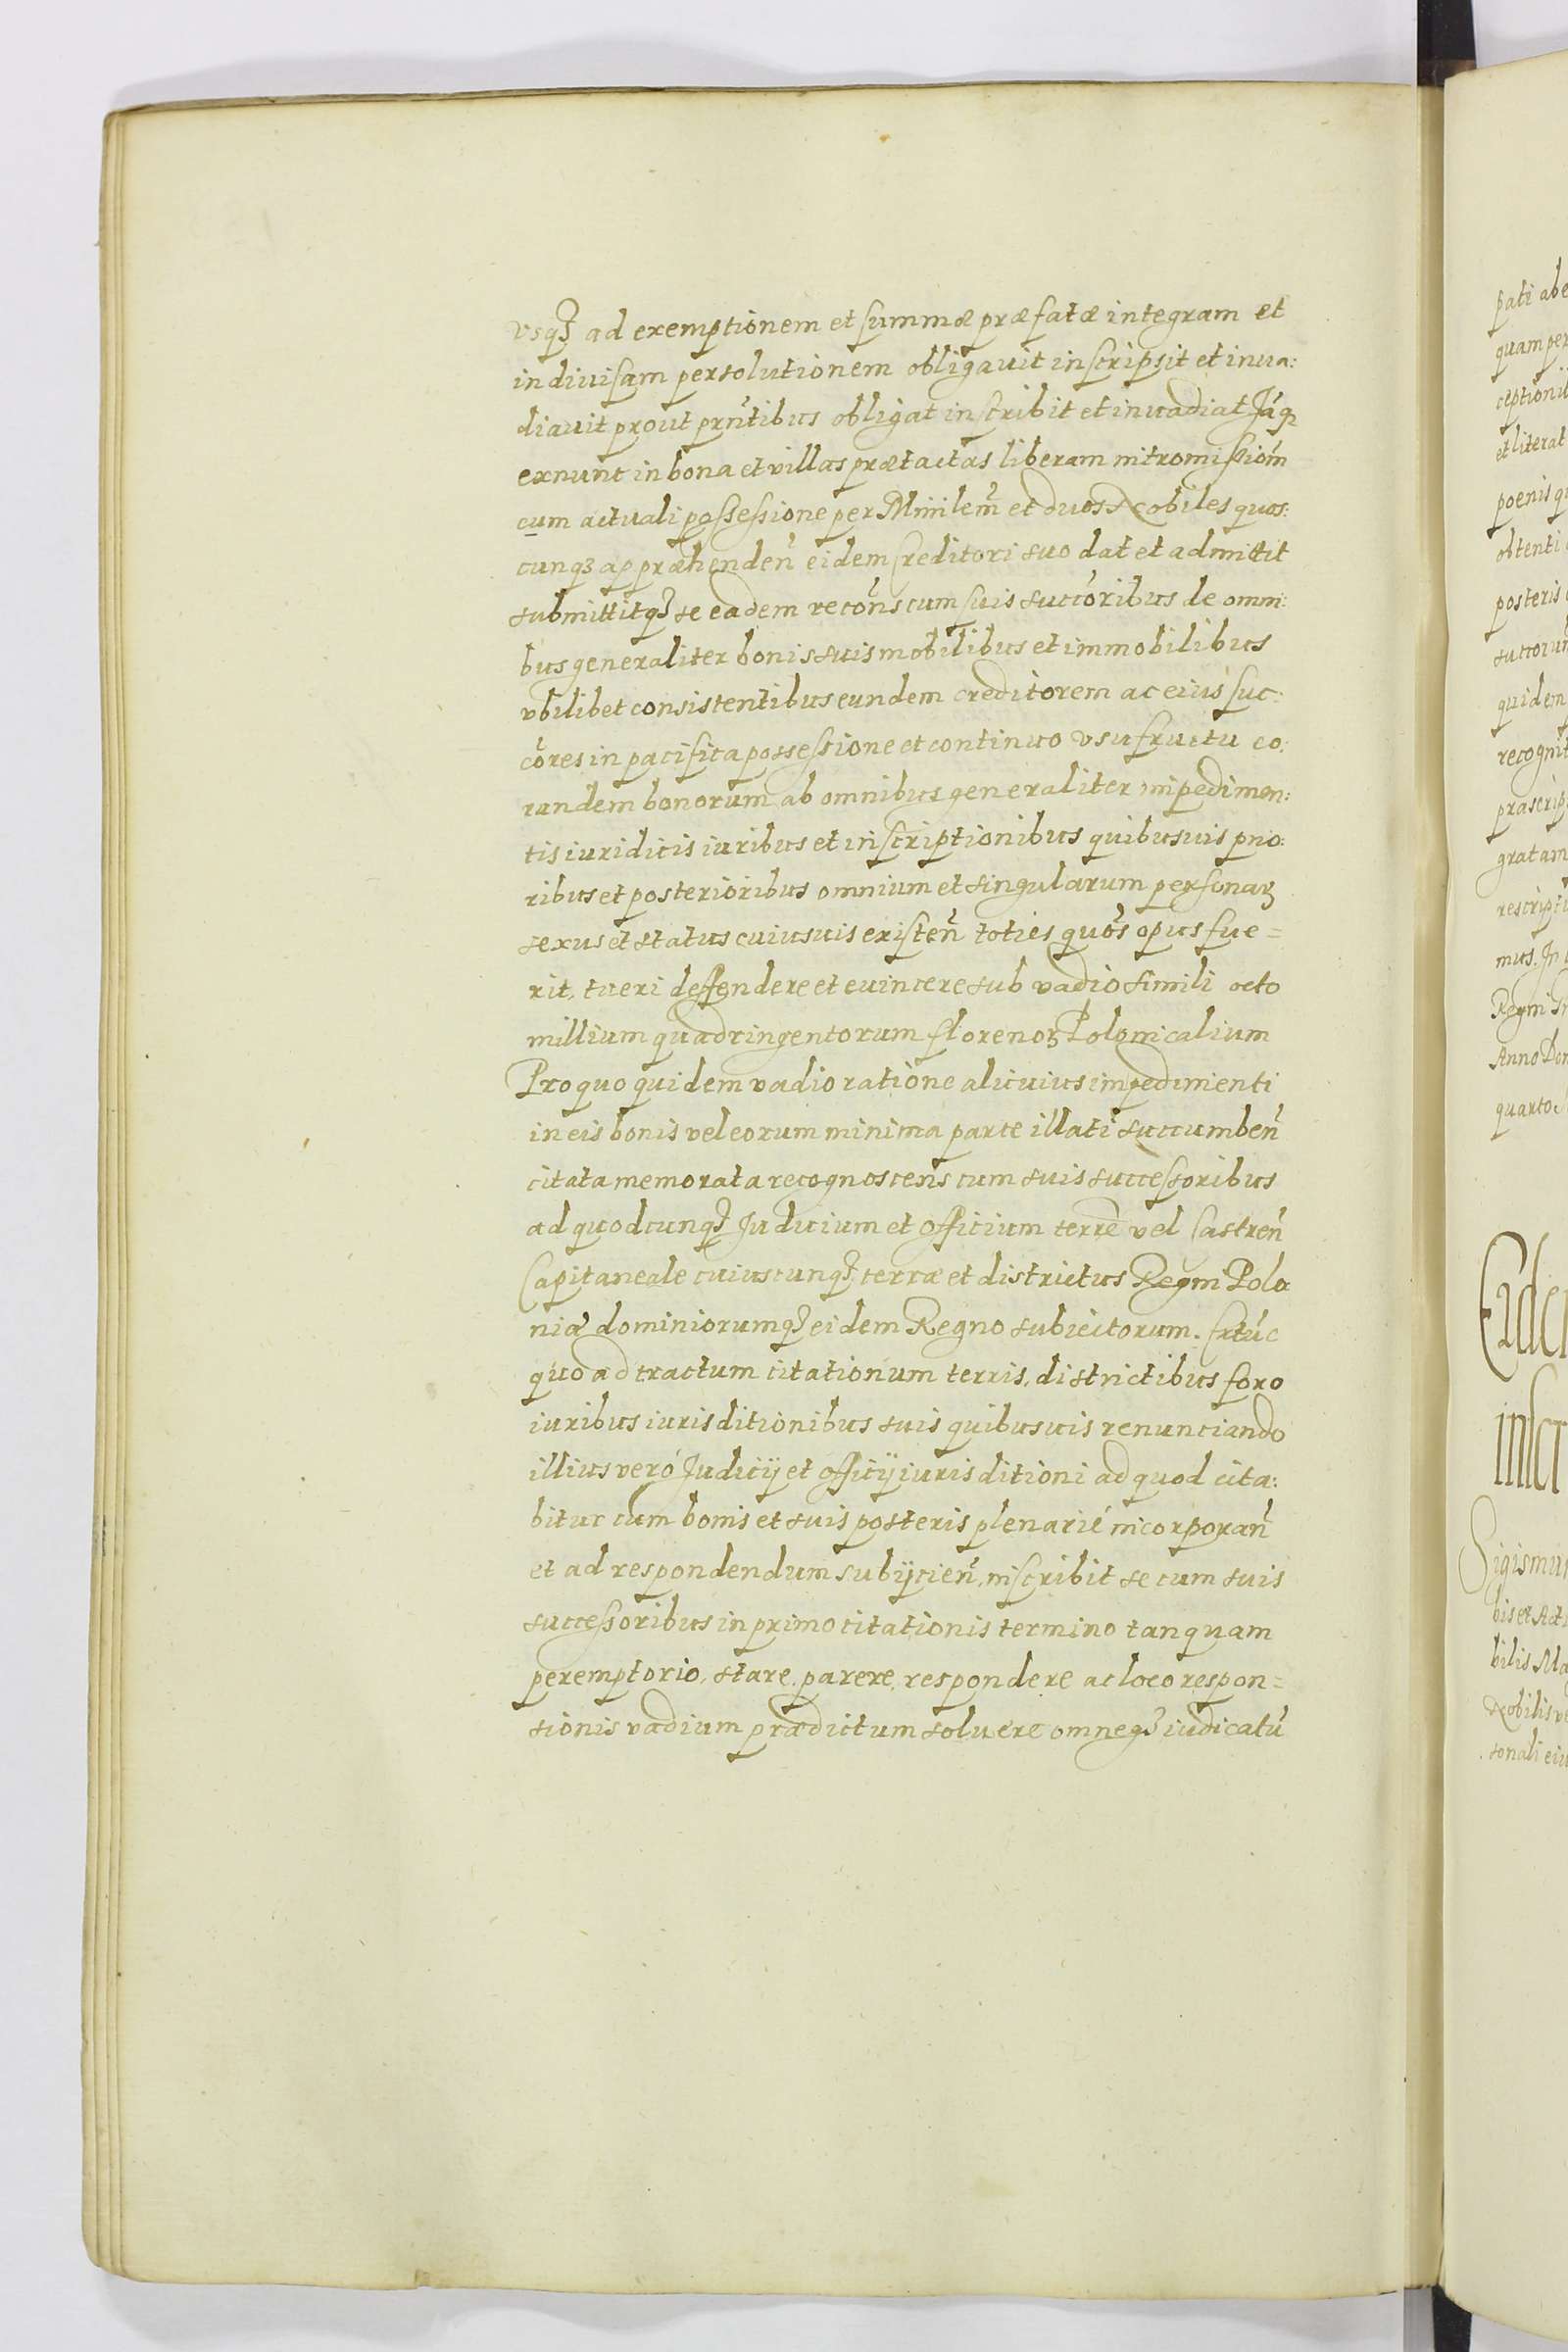 vsq₃ ad exemptionem et summæ præfatæ integram et
indiuisam persolutionem obligauit inscripsit et inua:
diauit prout prn̄tibus obligat inscribit et inuadiat Jāq₃
exnunc in bona et villas prætactas liberam intromissiom̄
cum actuali possessione per Mini̇lem̄ et duos Nobiles quos:
cunq₃ appræhenden̄ eidem Creditori suo dat et admittit
submittitq₃ se eadem recōns cum suis succōribus de omni:
bus generaliter bonis suis mobilibus et immobilibus
vbilibet consistentibus eundem creditorem ac eius suc:
cōres in pacifica possessione et continuo vsufructu eo:
rundem bonorum ab omnibus generaliter impedimen:
tis iuridicis iuribus et inscriptionibus quibusuis prio:
ribus et posterioribus omnium et singularum personaꝝ
sexus et status cuiusuis existen̄ toties quōs opus fue=
rit, tueri deffendere et euincere sub vadio simili octo
millium quadringentorum florenoꝝ Polonicalium
Pro quo quidem vadio ratione alicuius impedimenti
in eis bonis vel eorum minima parte illati succumben̄
citata memorata recognoscens cum suis successoribus
ad quodcunq₃ Judicium et officium terrē vel Castren̄
Capitaneale cuiuscunq₃ terræ et districtus Regni Polo
niæ dominiorumq₃ eidem Regno subiectorum. Extūc
quo ad tractum citationum terris, districtibus foro
iuribus iurisditionibus suis quibusuis renunciando
illius veró Judicij et officij iurisditioni ad quod cita:
bitur cum bonis et suis posteris plenarié incorporan̄
et ad respondendum subijcien̄, inscribit se cum suis
successoribus in primo citationis termino tanquam
peremptorio, stare, parere, respondere ac loco respon=
sionis vadium prædictum soluere omneq₃ iudicatū
pati abe
quam per
ceptioni
et literat
poenis qu
obtenti
posteris
succorum
quidem
recognit
præscrip
gratam
rescripti
mus. In
Regni
Anno Dom
quarto
Eidem
inscr
Sigismun
bis et Act
bilis Ma
Nobilis ve
sonali eiu